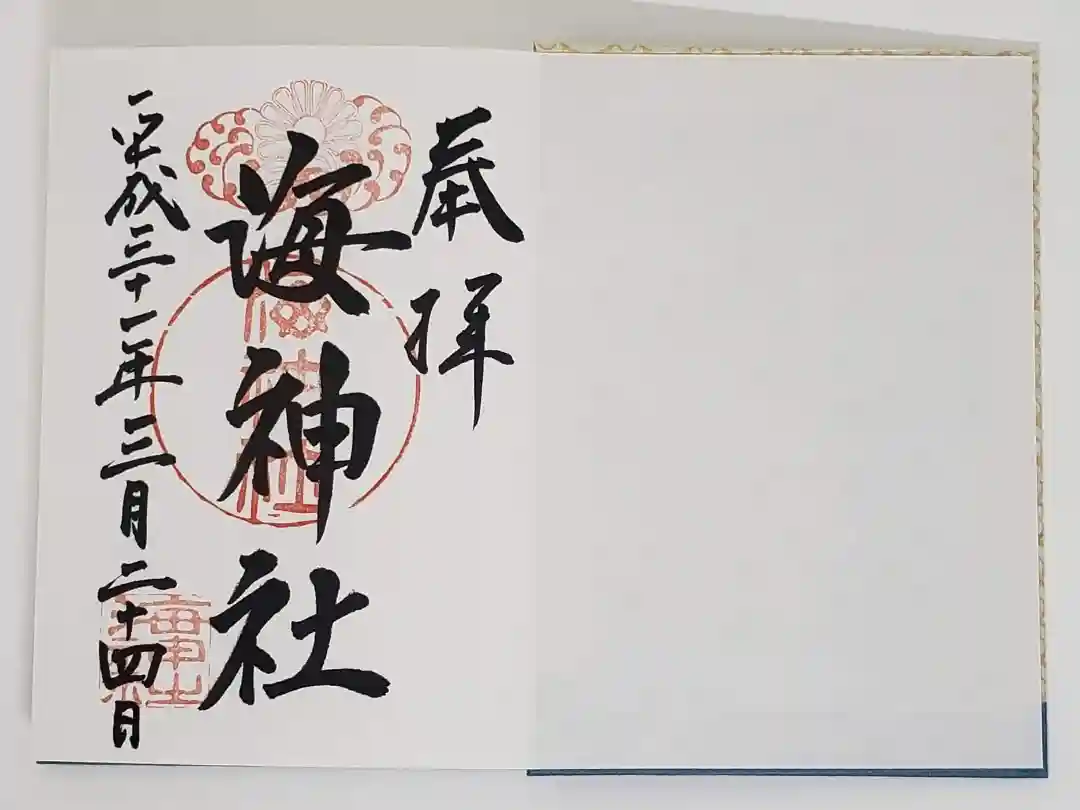 奉拝
海神社
平成三十一年三月二十四日
海神社